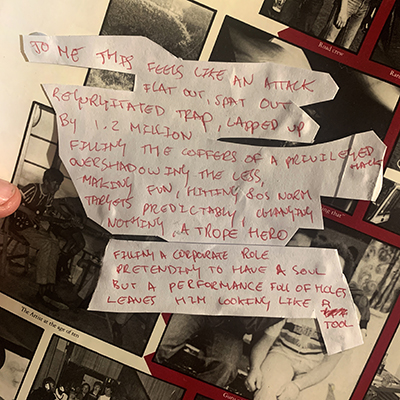 Road crew
TO ME THIS FEELS LIKE AN ATTACK
FLAT OUT, SPAT OUT
REGURGITATED TRAP, LAPPED UP
BY 1.2 MILLION
FILLING THE COFFERS OF A PRIVILEGED
OVERSHADOWING THE LESS,
MAKING FUN, HITTING 80S NORM
TARGETS PREDICTABLY, CHANGING
NOTHING, A TROPE HERO
FILLING A CORPORATE ROLE
PRETENDING TO HAVE A SOUL
BUT A PERFORMANCE FULL OF HOLES
LEAVES HIM LOOKING LIKE A
TOOL
The Artist at the age of ten